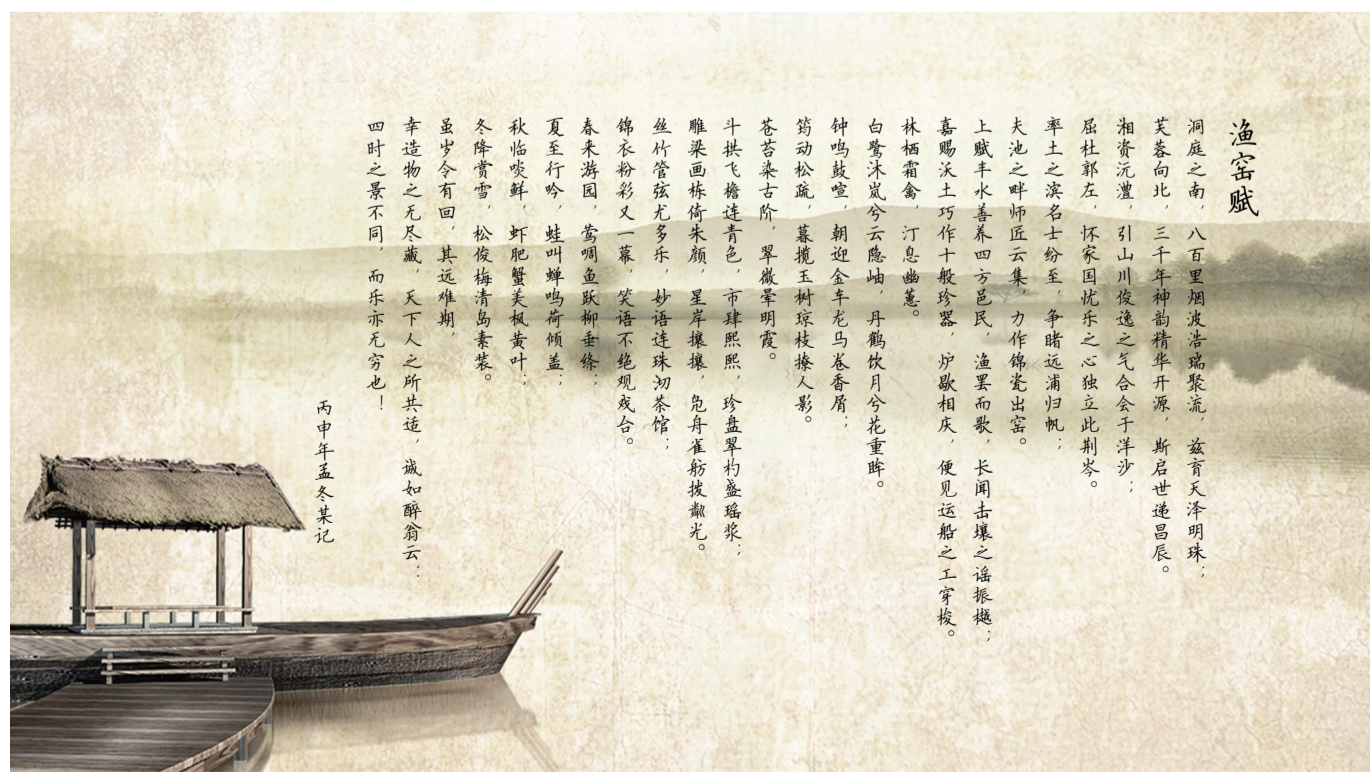 渔窑赋
洞庭之南，八百里烟波浩瑞聚流，兹育天泽明珠；
芙蓉向北，三千年神韵精华开源，斯启世递昌辰。
湘资沅澧，引山川俊逸之气合会于洋沙；
屈杜郭左，怀家国忧乐之心独立此荆岑。
率土之滨名士纷至，争睹远浦归帆；
夫池之畔师匠云集，力作锦瓷出窑。
上赋丰水善养四方邑民，渔罢而歌，长闻击壤之谣振樾；
嘉赐沃土巧作十般珍器，炉歇相庆，便见运船之工穿梭。
林栖霜禽，汀息幽蕙。
白鹭沐岚兮云隐岫，丹鹤饮月兮花重眸。
钟鸣鼓喧，朝迎金车龙马卷香屑；
筠动松疏，暮揽玉树琼枝撩人影。
苍苔染古阶，翠微晕明霞。
斗拱飞檐连青色，市肆熙熙，珍盘翠杓盛瑶浆；
雕梁画栋倚朱颜，星岸攘攘，凫舟雀舫拨粼光。
丝竹管弦尤多乐，妙语连珠沏茶馆；
锦衣粉彩又一幕，笑语不绝观戏台。
春来游园，莺啁鱼跃柳垂绦；
夏至行吟，蛙叫蝉鸣荷倾盖；
秋临啖鲜，虾肥蟹美枫黄叶；
冬降赏雪，松俊梅清岛素装。
虽岁令有回，其远难期，
幸造物之无尽藏，天下人之所共适，诚如醉翁云：
四时之景不同，而乐亦无穷也！
丙申年孟冬某记